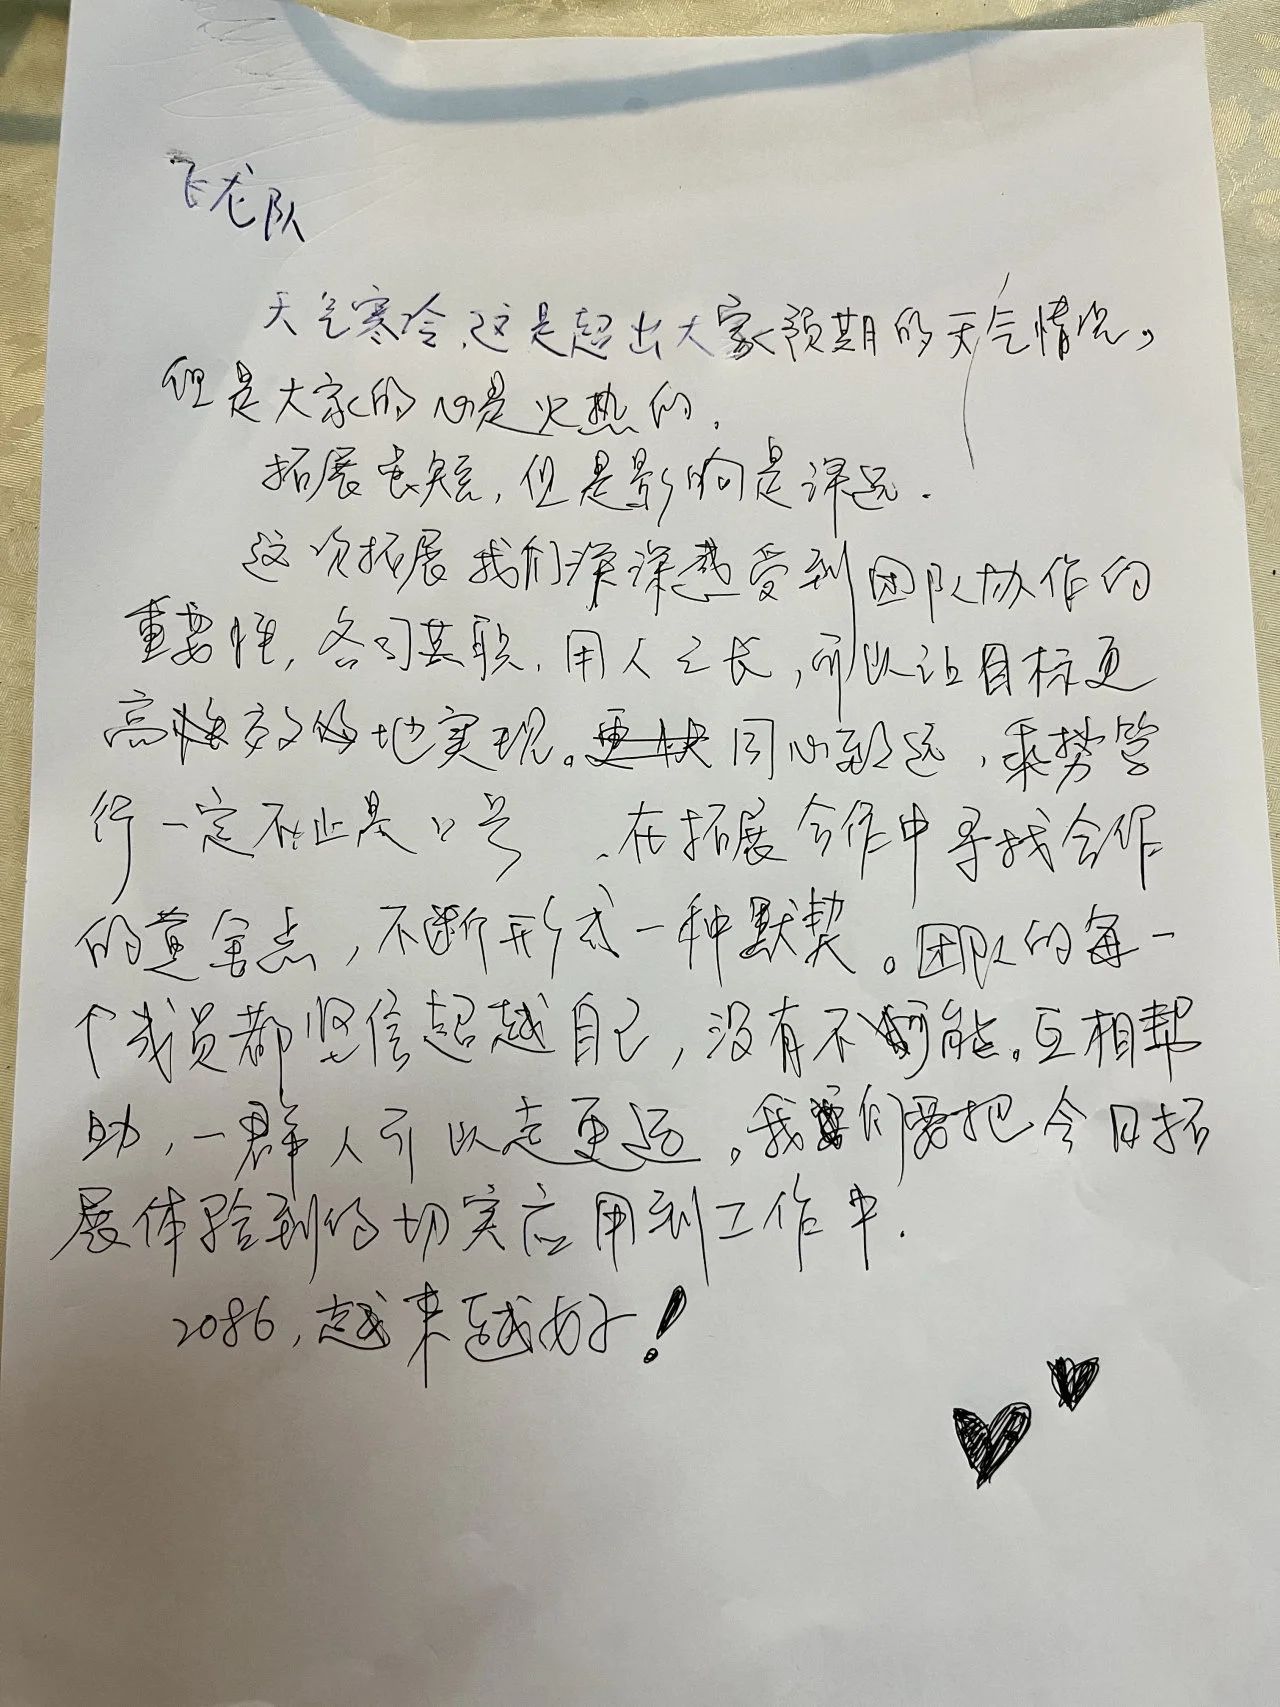 飞龙队
天气寒冷,这是超出大家预期的天气情况。
但是大家的心是火热的.
拓展虽短,但是影响是深远.
这次拓展我们深深感受到团队协作的
重要性,各司其职,用人之长,所以让目标更
高效的地实现。同心致远,乘势笃
行一定不止是口号 .在拓展合作中寻找合作
的黄金点,不断形成一种默契。团队的每一
个成员都坚信超越自己,没有不可能。互相帮
助,一群人可以走更远。我们要把今日拓
展体验到的切实应用到工作中.
2086,越来越好!